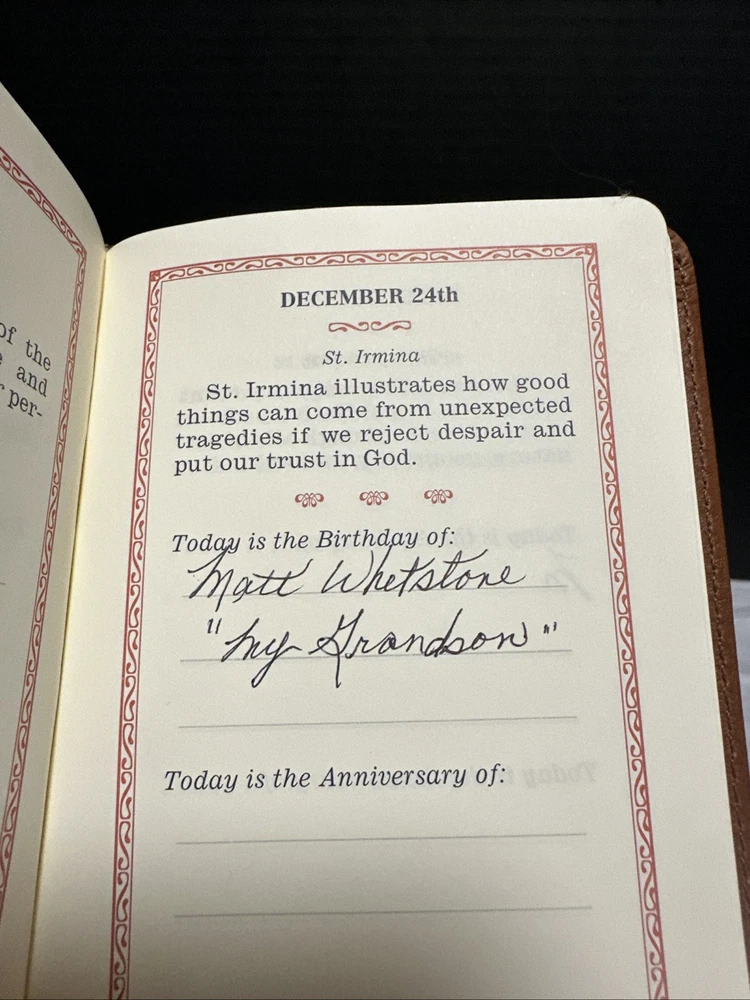 of the
and
per-
DECEMBER 24th
St. Irmina
St. Irmina illustrates how good
things can come from unexpected
tragedies if we reject despair and
put our trust in God.
Today is the Birthday of:
Matt Whetstone
"My Grandson"
Today is the Anniversary of: